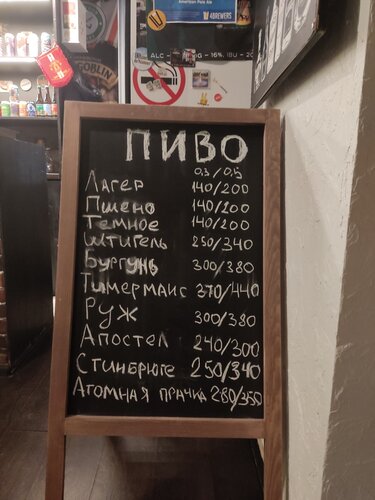 American Pale Ale
4BREWERS
GOBLIN
ПИВО
0,3/0,5
Лагер 140/200
Пшено 140/200
Темное 140/200
Штигель 250/340
Бургунь 300/380
Тимерманс 370/440
Руж 300/380
Апостел 240/300
Стинбрюге 250/340
Атомная прачка 280/350